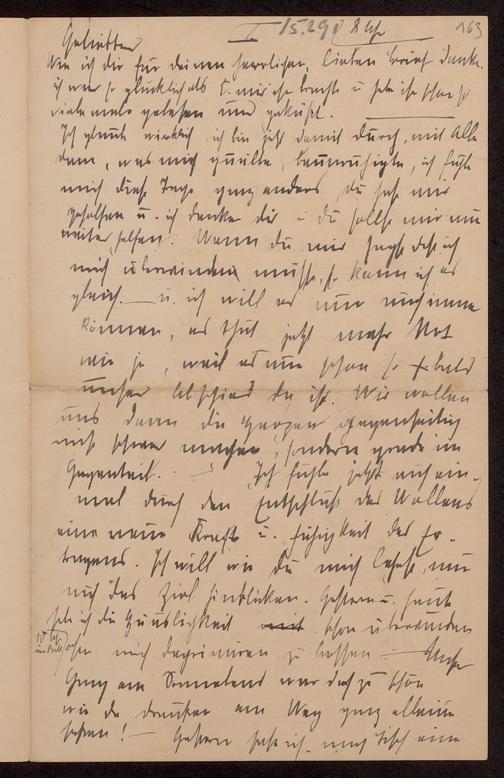 I 15.29. 8 Uhr 163
Geliebter
Wie ich dir für deinen herrlichen, lieben brief danke.
ich war so glücklich als E. mir ihn brachte u habe ihn schon so
viele male gelesen und geküßt.
Ich glaube wirklich, ich bin jetzt damit durch, mit Alle
dem, was mich quälte, beunruhigte, ich fühle
mich diese Tage ganz anders, du hast mir
geholfen u. ich danke dir u du sollst mir nun
weiter helfen. Wenn du mir sagst daß ich
mich überwinden müsse, so kann ich es
gleich. — u. ich will es nun auch immer
können, es thut jetzt mehr Not
wie je, weil es nun schon so bald
unser Abschied da ist. Wir wollen
uns dann die Herzen gegenseitig
nicht schwer machen, sondern grade im
Gegenteil. — Ich fühle jetzt auf ein-
mal durch den Entschluß des Wollens
eine neue Kraft u. Fähigkeit des Er-
tragens. Ich will wie du mich lehrst, nur
auf das Ziel hinblicken. Gestern u. heute
habe ich die Häuslichkeit schon überwunden
10 Uhr
im Bett
ohne mich deprimieren zu lassen — Unser
Gang am Sonnabend war doch zu schön
wie da draußen am Weg ganz alleine
sahen! — Gestern habe ich nach Tisch eine